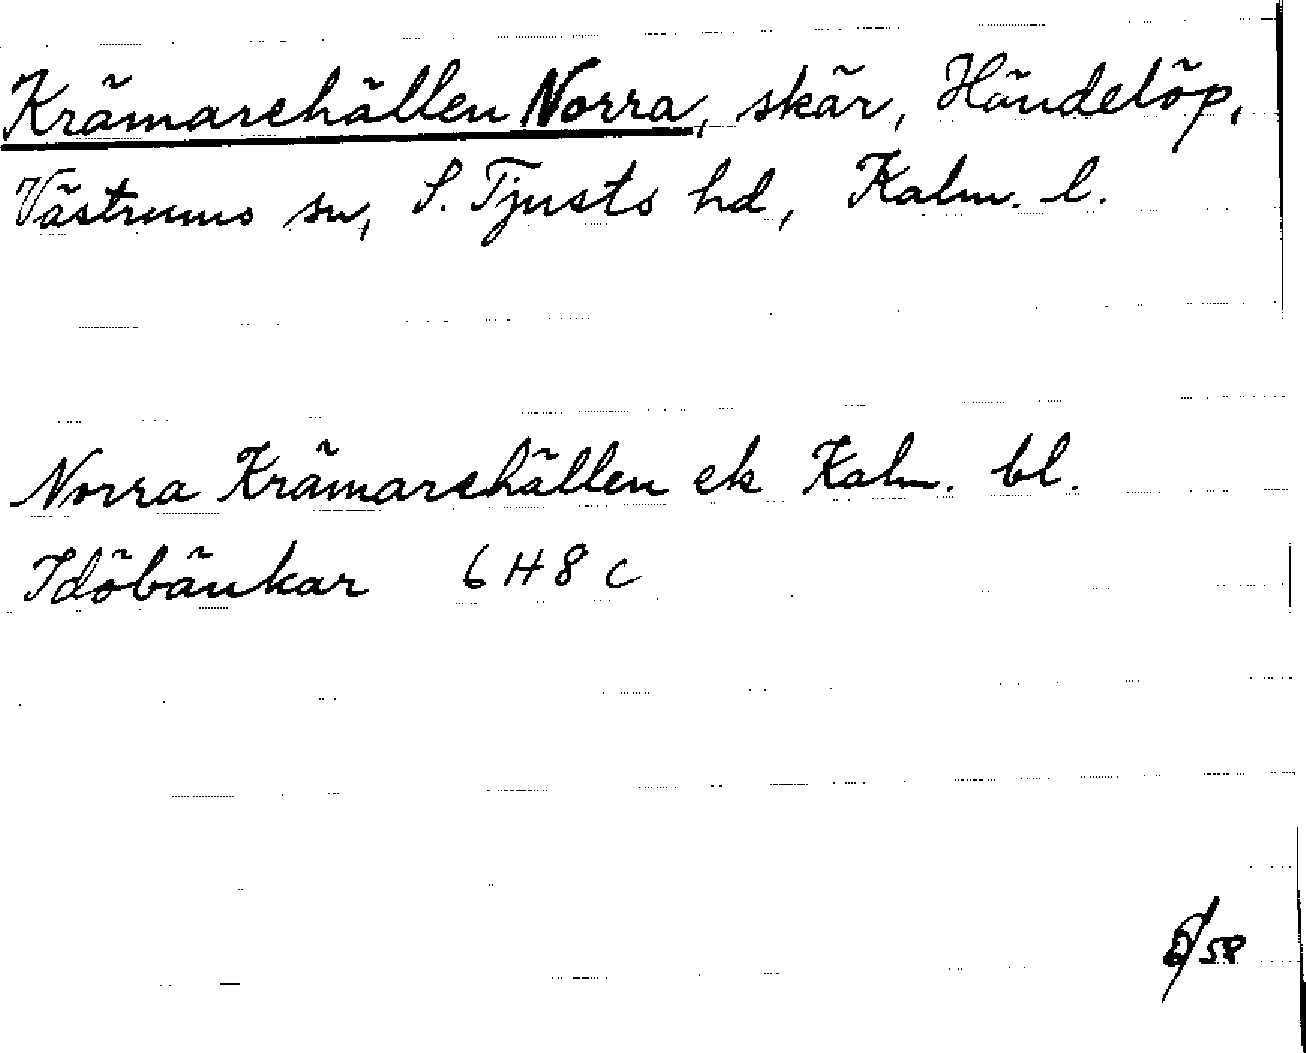 Krämarehällen Norra, skär, Händelöp,
Västrums sn, S. Tjusts hd, Kalm. l.
Norra Krämarehällen ek Kalm. bl.
Idöbänkar 6 H 8 c
/58